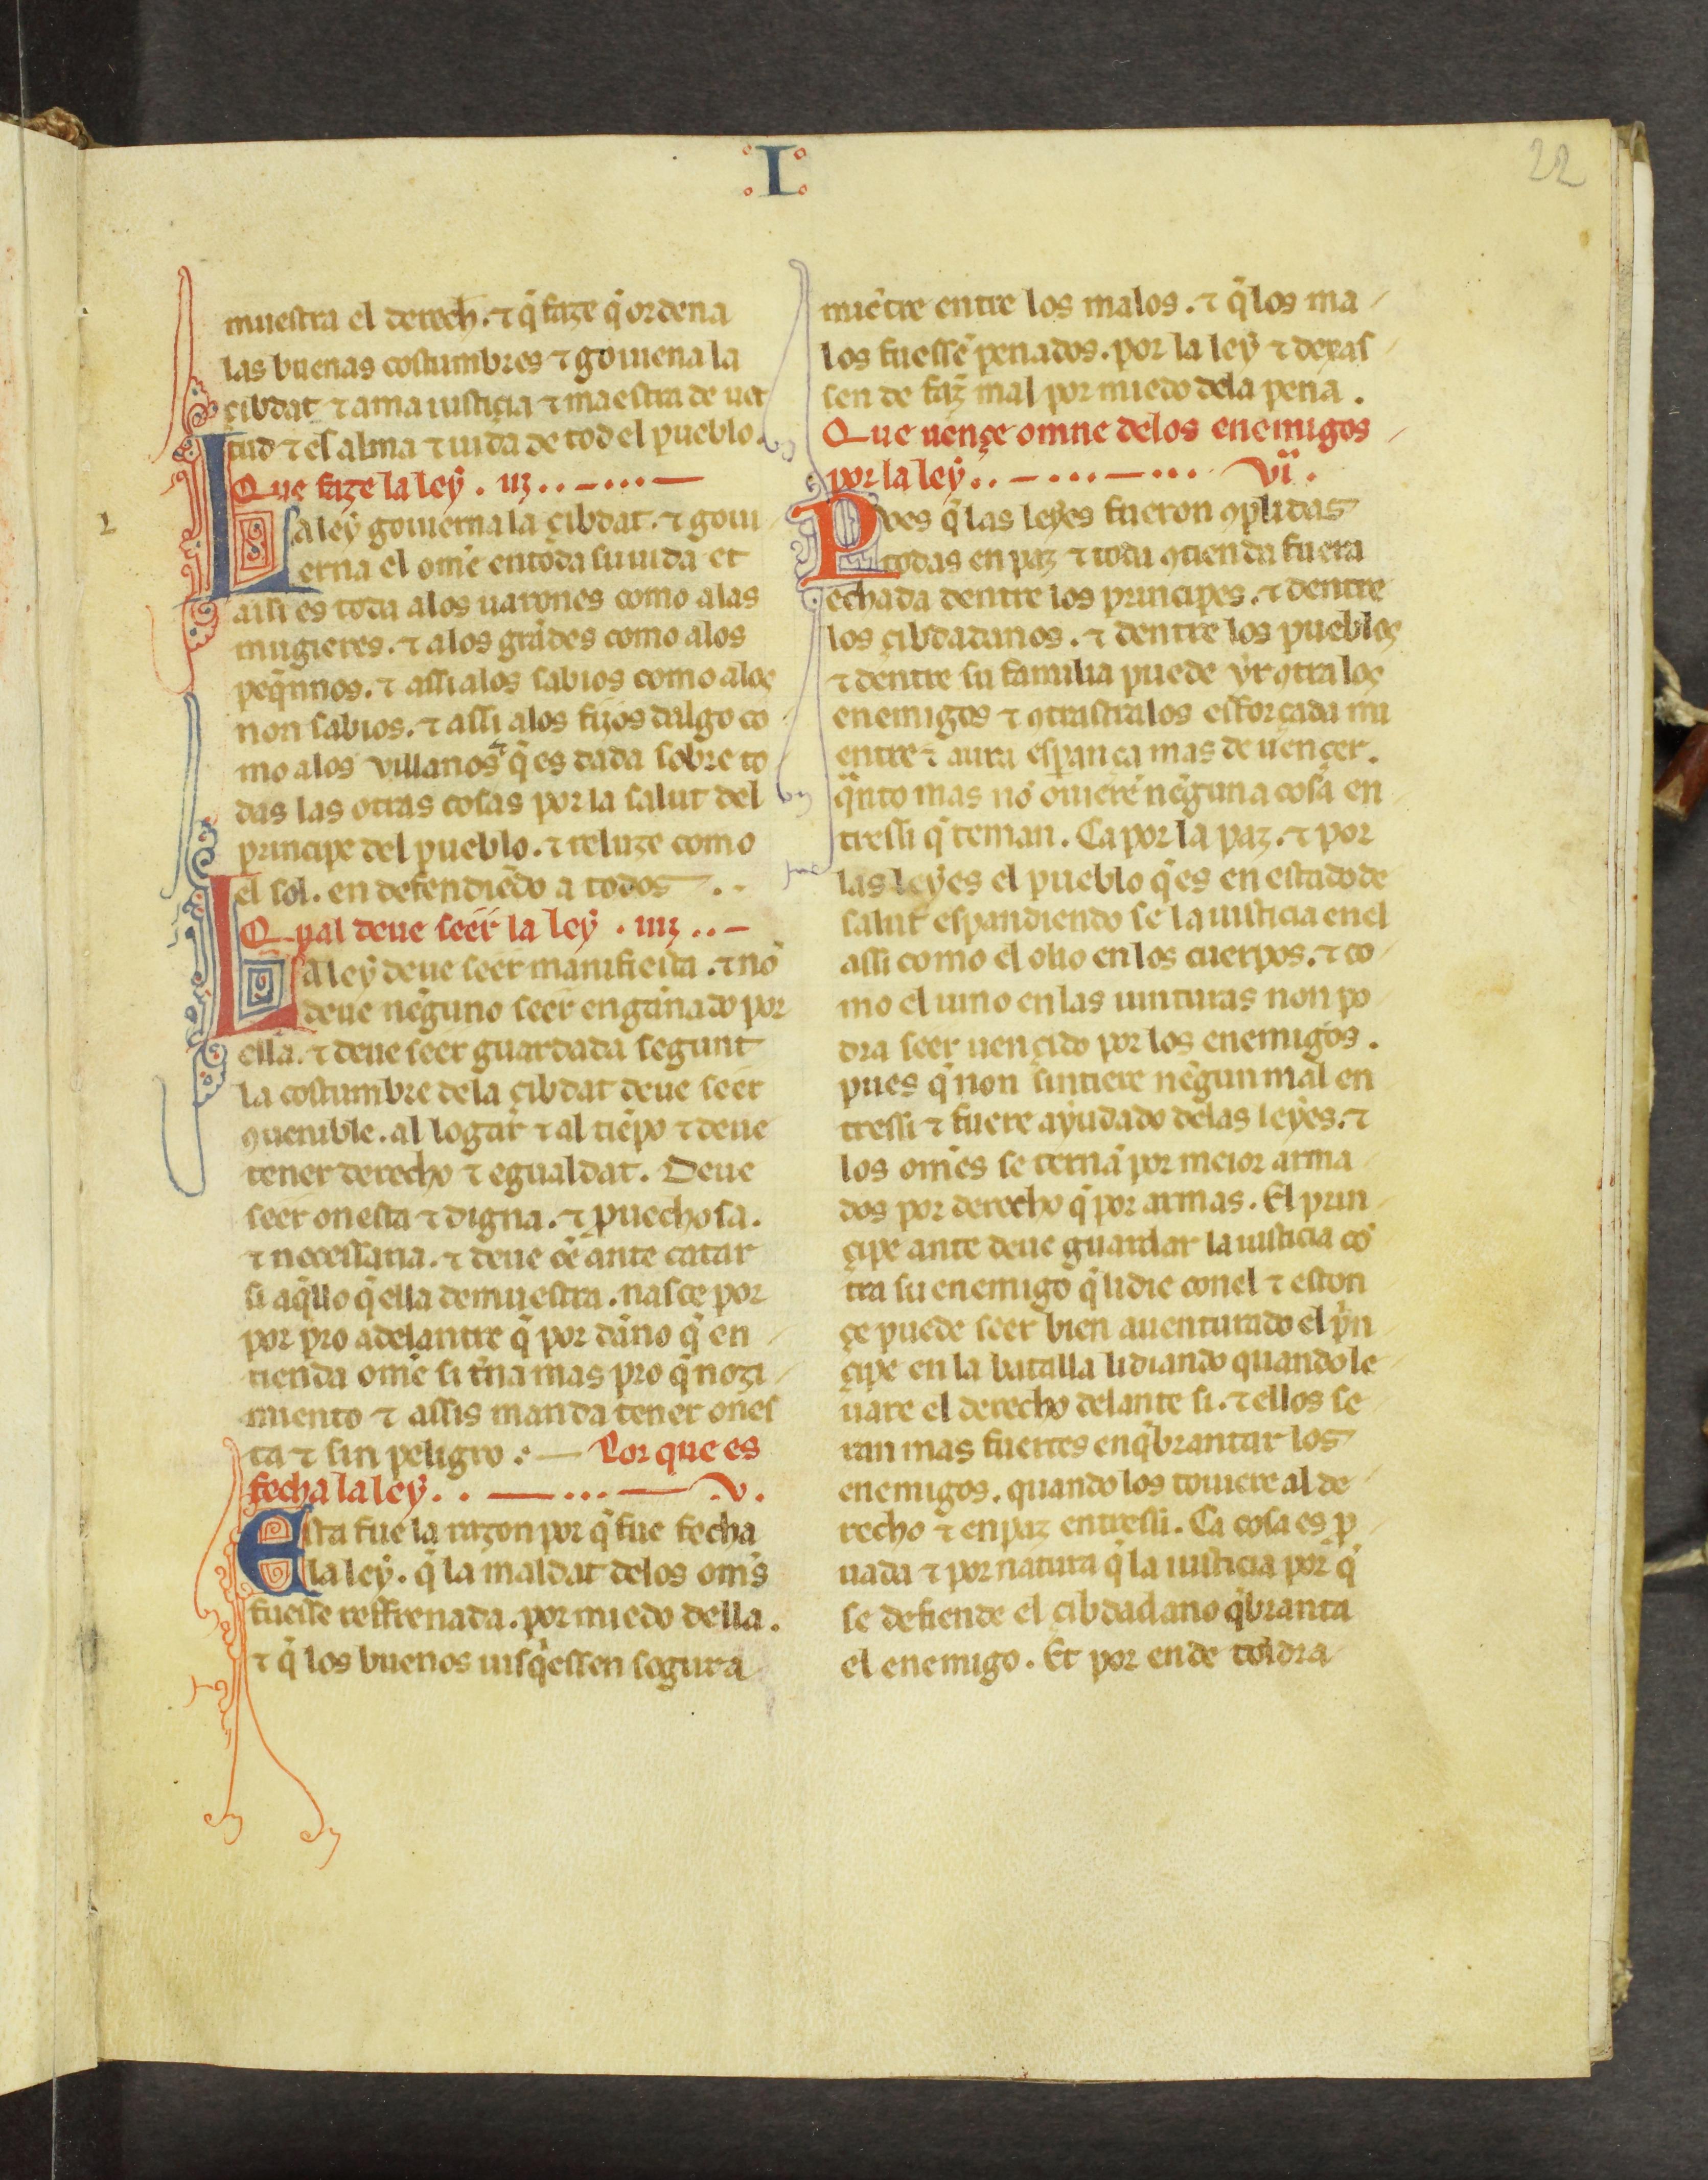 I
22
muestra el derech. ⁊ q̃ faze q̃ ordena
las buenas costumbres ⁊ gouiena la
çibdat ⁊ ama iustiçia ⁊ maestra de uer
tud ⁊ es alma ⁊ uida de tod el pueblo.
Que faze la ley . iij . . – . . . –
La ley gouierna la çibdat. ⁊ goui
erna el om̃e en toda su uida et
assi es toda alos uarones como alas
mugieres. ⁊ alos grãdes como alos
peq̃nnos. ⁊ assi alos sabios como alos
non sabios. ⁊ assi alos fijos dalgo co
mo alos villanos ⁊ q̃ es dada sobre to
das las otras cosas por la salut del
prinçipe del pueblo. ⁊ reluze como
el sol. en defendiẽdo a todos . .
Qual deue seer la ley . iiij . . –
La ley deue seer manifiesta . ⁊ nõ
deue neguno seer engannado por
ella. ⁊ deue seer guardada segunt
la costumbre dela çibdat deue seer
ꝯuenible. al logar ⁊ al tiẽpo ⁊ deue
tener derecho ⁊ egualdat. Deue
seer onesta ⁊ digna. ⁊ ꝓuechosa.
⁊ necessaria. ⁊ deue õe ante catar
si aq̃llo q̃ ella demuestra. nasce por
por pro adelantre q̃ por dãno q̃ en
tienda om̃e si t̃na mas pro q̃ nozi
miento ⁊ assis manda tener ones
ta ⁊ sin peligro . – Por que es
fecha la ley. . – . . . – .v.
Esta fue la razon por q̃ fue fecha
la ley. q̃ la maldat delos om̃s
fuesse reffrenada. por miedo della.
⁊ q̃ los buenos uisq̃essen segura
miẽtre entre los malos. ⁊ q̃ los ma
los fuessẽ penados. por la ley ⁊ dexas
sen de faz̃ mal por miedo dela pena.
Que uençe omne delos enemigos
por la ley. . – . . . – . . . vi .
Pves q̃ las leyes fueron ꝯplidas
todas en paz ⁊ toda ꝯtienda fuera
echada dentre los principes. ⁊ dentre
los çibdadanos. ⁊ dentre los pueblos
⁊ dentre su familia puede yr ꝯtra los
enemigos ⁊ ꝯtrastralos esforçada mi
entre ⁊ aura esperança mas de uençer.
q̃nto mas nõ ouierẽ nẽguna cosa en
tressi q̃ teman. Ca por la paz. ⁊ por
las leyes el pueblo q̃ es en estado de
salut espandiendo se la iusticia en el
assi como el olio en los cuerpos. ⁊ co
mo el uino en las uinturas non po
dra seer uençido por los enemigos.
pues q̃ non sintiere nẽgun mal en
tressi ⁊ fuere ayudado delas leyes. ⁊
los om̃es se ternã por meior arma
dos por derecho q̃ por armas. El prin
çipe ante deue guardar la iusticia cõ
tra su enemigo q̃ lidie con el ⁊ eston
çe puede seer bien auenturado el p̃n
çipe en la batalla lidiando quando le
uare el derecho delante si. ⁊ ellos se
ran mas fuertes en q̃brantar los
enemigos. quando los touiere al de
recho ⁊ en paz entressi. Ca cosa es ꝓ
uada ⁊ por natura q̃ la iusticia por q̃
se defiende el çibdadano q̃branta
el enemigo. Et por ende toldra